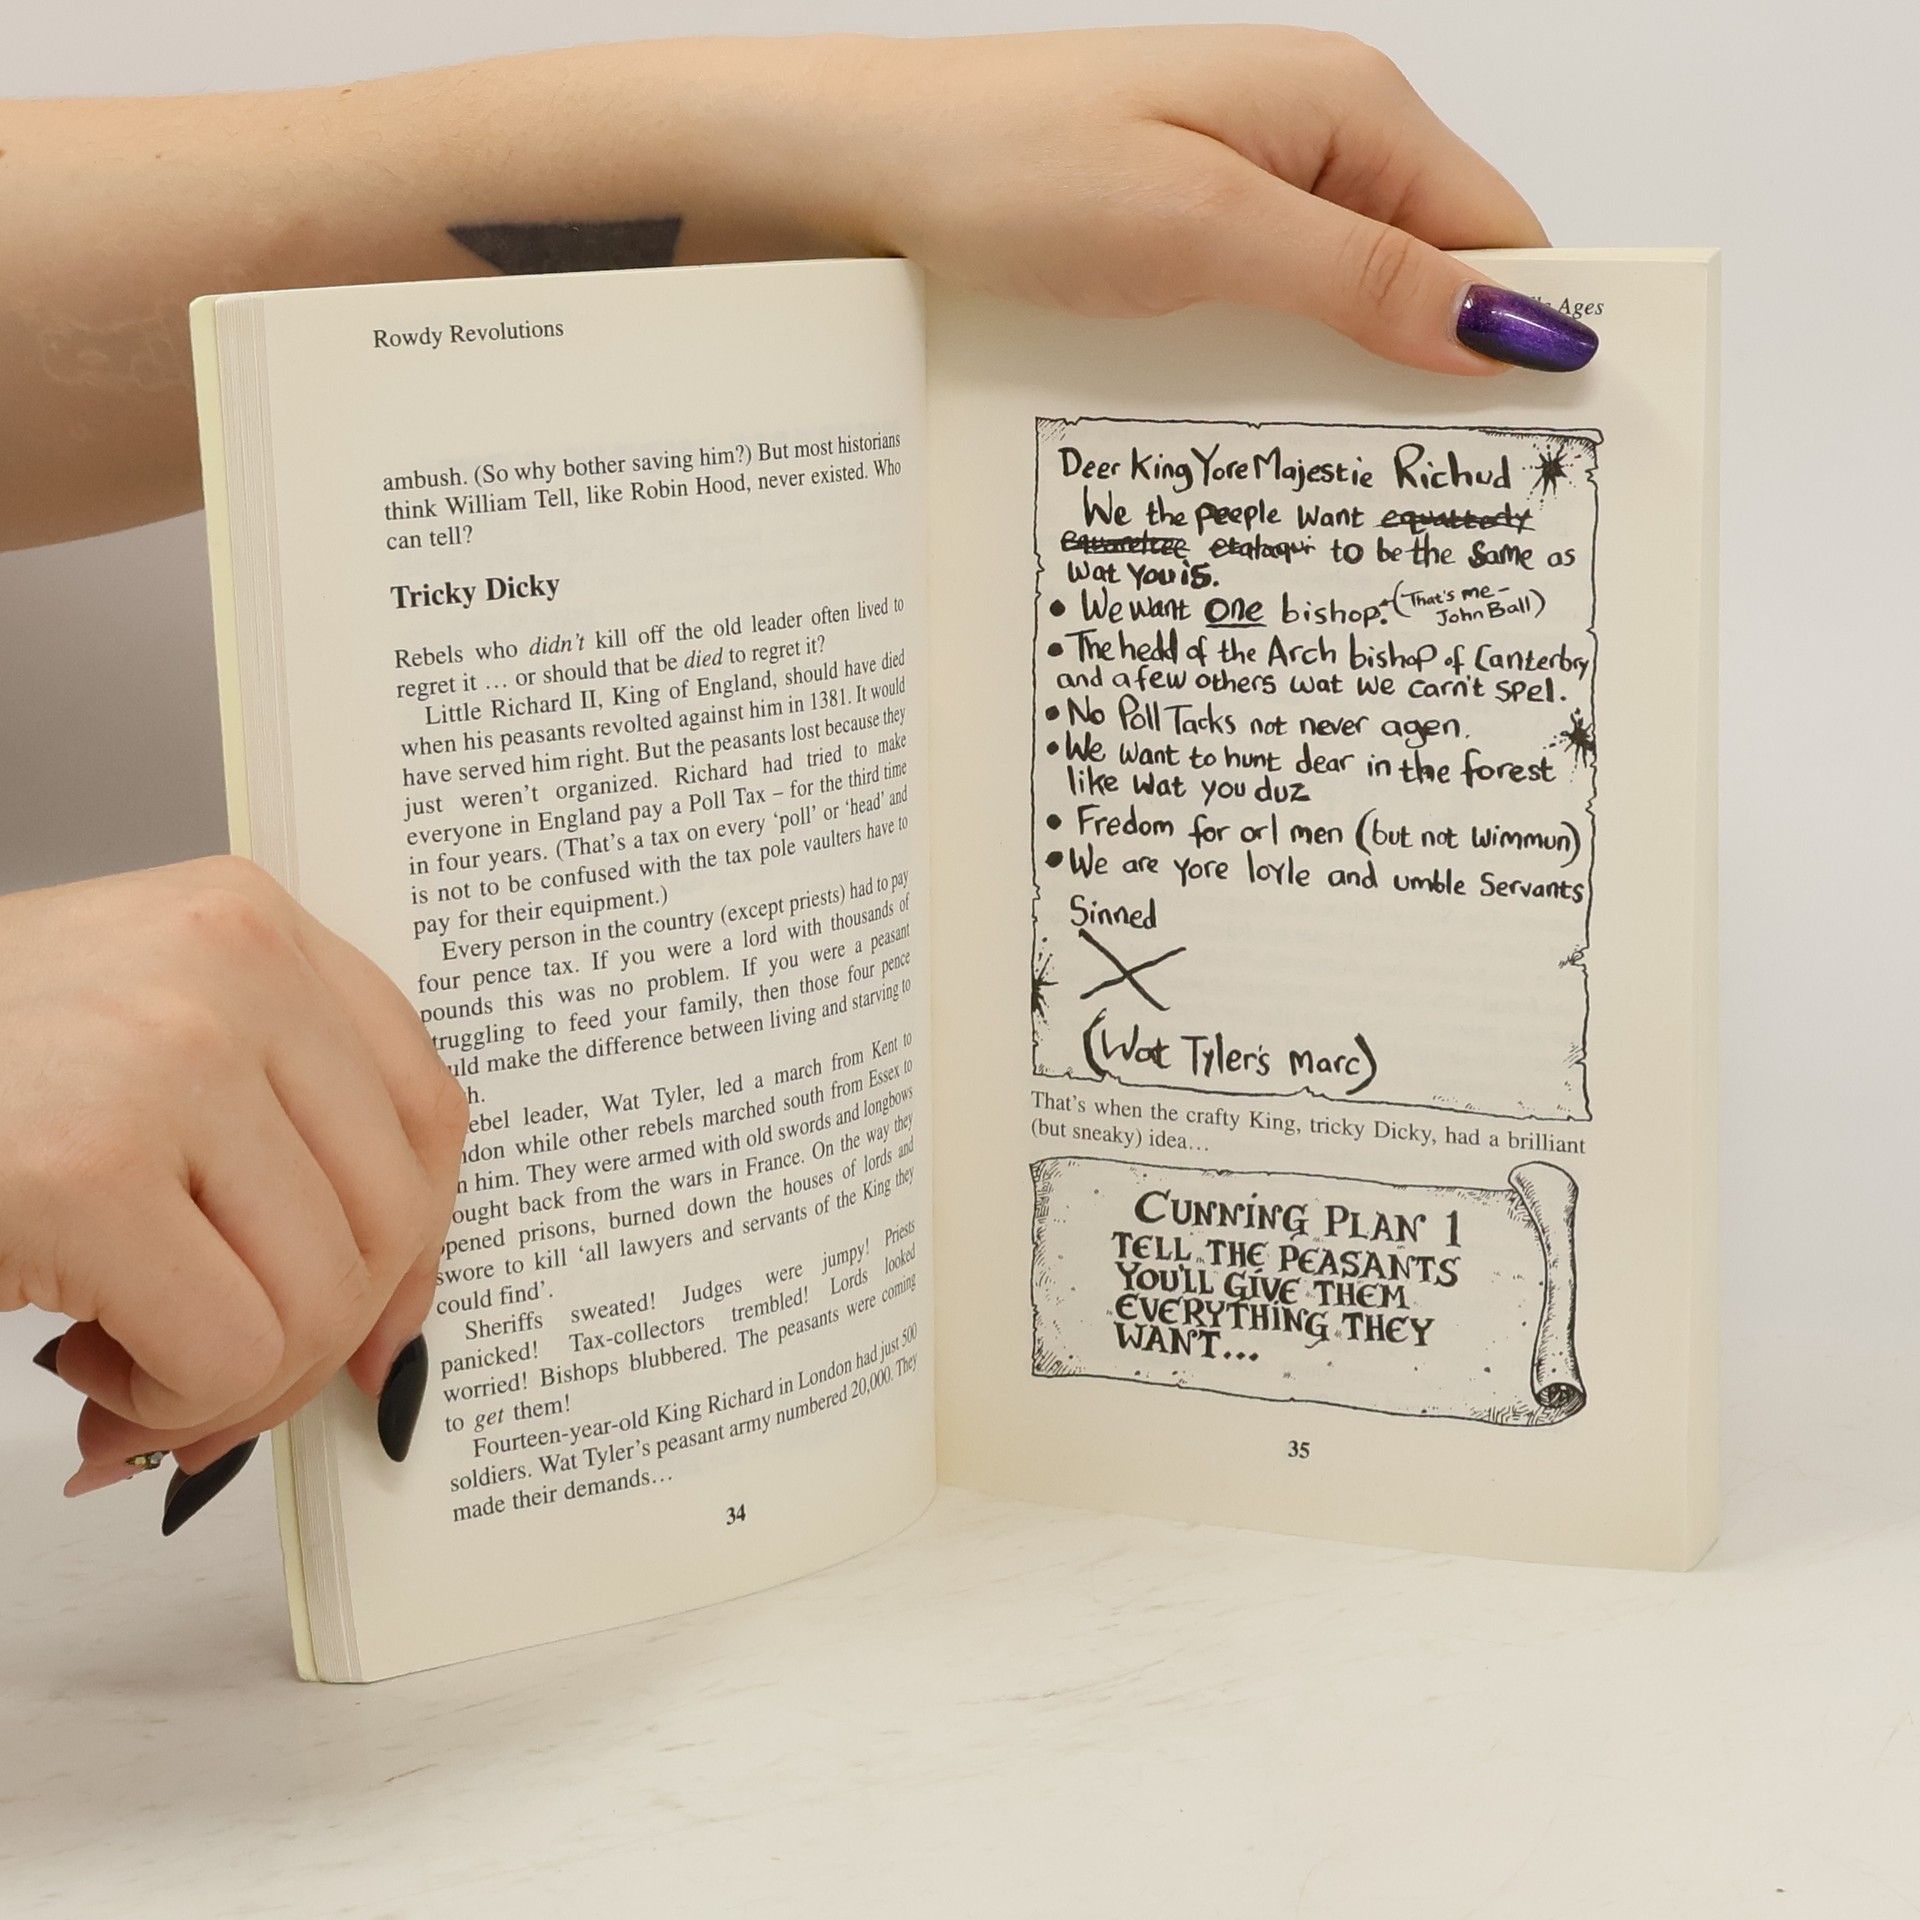 Rowdy Revolutions
ambush. (So why bother saving him?) But most historians
think William Tell, like Robin Hood, never existed. Who
can tell?
Tricky Dicky
Rebels who didn't kill off the old leader often lived to
regret it … or should that be died to regret it?
Little Richard II, King of England, should have died
when his peasants revolted against him in 1381. It would
have served him right. But the peasants lost because they
just weren't organized. Richard had tried to make
everyone in England pay a Poll Tax – for the third time
in four years. (That's a tax on every 'poll' or 'head' and
is not to be confused with the tax pole vaulters have to
pay for their equipment.)
Every person in the country (except priests) had to pay
four pence tax. If you were a lord with thousands of
pounds this was no problem. If you were a peasant
truggling to feed your family, then those four pence
uld make the difference between living and starving to
h.
ebel leader, Wat Tyler, led a march from Kent to
ndon while other rebels marched south from Essex to
n him. They were armed with old swords and longbows
ought back from the wars in France. On the way they
pened prisons, burned down the houses of lords and
swore to kill 'all lawyers and servants of the King they
could find'.
Sheriffs sweated! Judges were jumpy! Priests
panicked! Tax-collectors trembled! Lords looked
worried! Bishops blubbered. The peasants were coming
to get them!
Fourteen-year-old King Richard in London had just 500
soldiers. Wat Tyler's peasant army numbered 20,000. They
made their demands…
34
Ages
Deer King Yore Majestie Richud
We the peeple want
to be the same as
wat you is.
• We want one bishop. (That's me –
John Ball)
• The hedd of the Arch bishop of Canterbry
and a few others wat we carn't spel.
• No Poll Tacks not never agen.
• We want to hunt dear in the forest
like wat you duz
• Fredom for orl men (but not wimmun)
• We are yore loyle and umble servants
Sinned
X
(Wat Tyler's marc)
That's when the crafty King, tricky Dicky, had a brilliant
(but sneaky) idea…
CUNNING PLAN 1
TELL THE PEASANTS
YOU'LL GIVE THEM
EVERYTHING THEY
WANT...
35